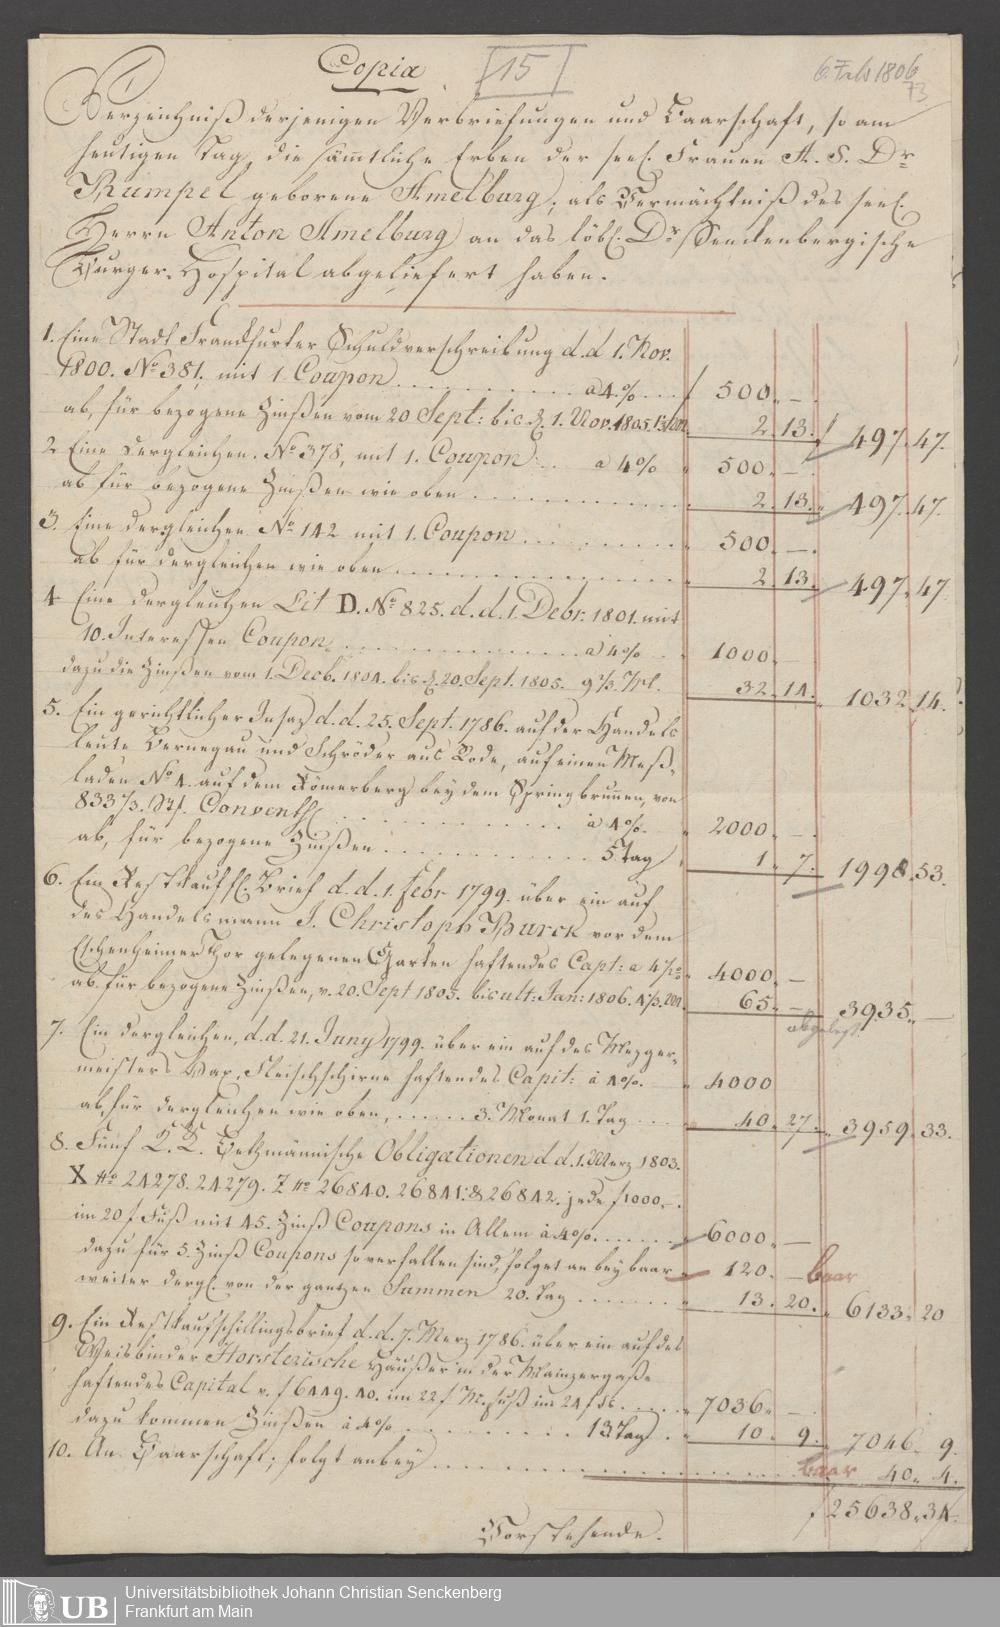 Copia
[15]
6. Feb 1806
73
Verzeichniß derjenigen Verbriefungen und Baarschaft, so am
heutigen Tag, die sämtliche Erben der seel. Frauen A. S. Dr
Rumpel geborene Amelburg, als Vermächtniß des seel.
Herrn Anton Amelburg an das löbl. Dr Senckenbergische
Burger-Hospital abgeliefert haben.
1. Eine Stadt Franckfurter Schuldverschreibung d.d 1. Nov.
1800. No 381, mit 1 Coupon . . . a 4.% . . . f 500. —.
ab, für bezogene Zinßen vom 20 Sept: bis d. 1. Nov. 1805. 2. 13. f 497. 47.
2. Eine dergleichen. No 378, mit 1. Coupon . . a 4% " 500. —.
ab für bezogene Zinßen wie oben . . . 2. 13. " 497. 47.
3. Eine dergleichen No 142 mit 1. Coupon . . . " 500. —.
ab für dergleichen wie oben . . . 2. 13. " 497. 47.
4 Eine dergleichen Lit D. No 825. d.d. 1. Debr: 1801. mit
10. Interessen Coupon . . . a 4% . . " 1000. —
dazu die Zinßen vom 1. Decb. 1804. bis d. 20. Sept. 1805. 9 2/3. Mt. 32. 14. " 1032. 14.
5. Ein gerichtlicher Insaz d.d. 25. Sept. 1786. auf der Handels
leute Bernegau und Schröder aus Rode, auf einen Meß-
laden No 4. auf dem Römerberg bey dem Springbrunnen, von
833 1/3. Convent . . . à 4%. " 2000. —.
ab, für bezogene Zinßen . . . 5. Tag 1. 7. 1998. 53.
6. Ein Restkauff. Brief d.d. 1. Febr 1799. über ein auf
des Handelsmann J. Christoph Burck vor dem
Eschenheimer Thor gelegenen Garten haftendes Capt: a 4 " 4000. —
ab für bezogene Zinßen, v. 20. Sept 1805. bis ult: Jan: 1806. 65. — 3935. —
abgelegt
7. Ein dergleichen, d.d. 21. Juny 1799. über ein auf des Mezger-
meisters Fleischschirne haftendes Capit: à 4%. " 4000
ab, für dergleichen wie oben, . . . 3. Monat 1. Tag . . . 40. 27. " 3959. 33.
8. Fünf K. K. Bethmännische Obligationen d.d. 1. Merz 1803.
X No 24278. 24279. Z No 26840. 26841. & 26842. jede f 1000,
im 20 f Fuß mit 45. Zinß Coupons in Allem à 4%. . . . 6000. —
dazu für 5. Zinß Coupons so verfallen sind, folget anbey baar " 120. — baar
weiter dergl. von der gantzen Summen 20. Tag . . . " 13. 20. " 6133. 20
9. Ein Restkaufschillingsbrief d.d. 7. Merz 1786. über ein auf des
Weisbinder Horsterische Häußer in der Mainzergaße
haftendes Capital v. f 6449. 40. im 22 f M. Fuß im 24 f . . . " 7036. —.
dazu kommen Zinßen à 4% . . . 13 Tag . " 10. 9. " 7046. 9.
10. An Baarschaft, folgt anbey . . . baar 40. 4.
f 25638. 34.
Vorstehende.
UB
Universitätsbibliothek Johann Christian Senckenberg
Frankfurt am Main